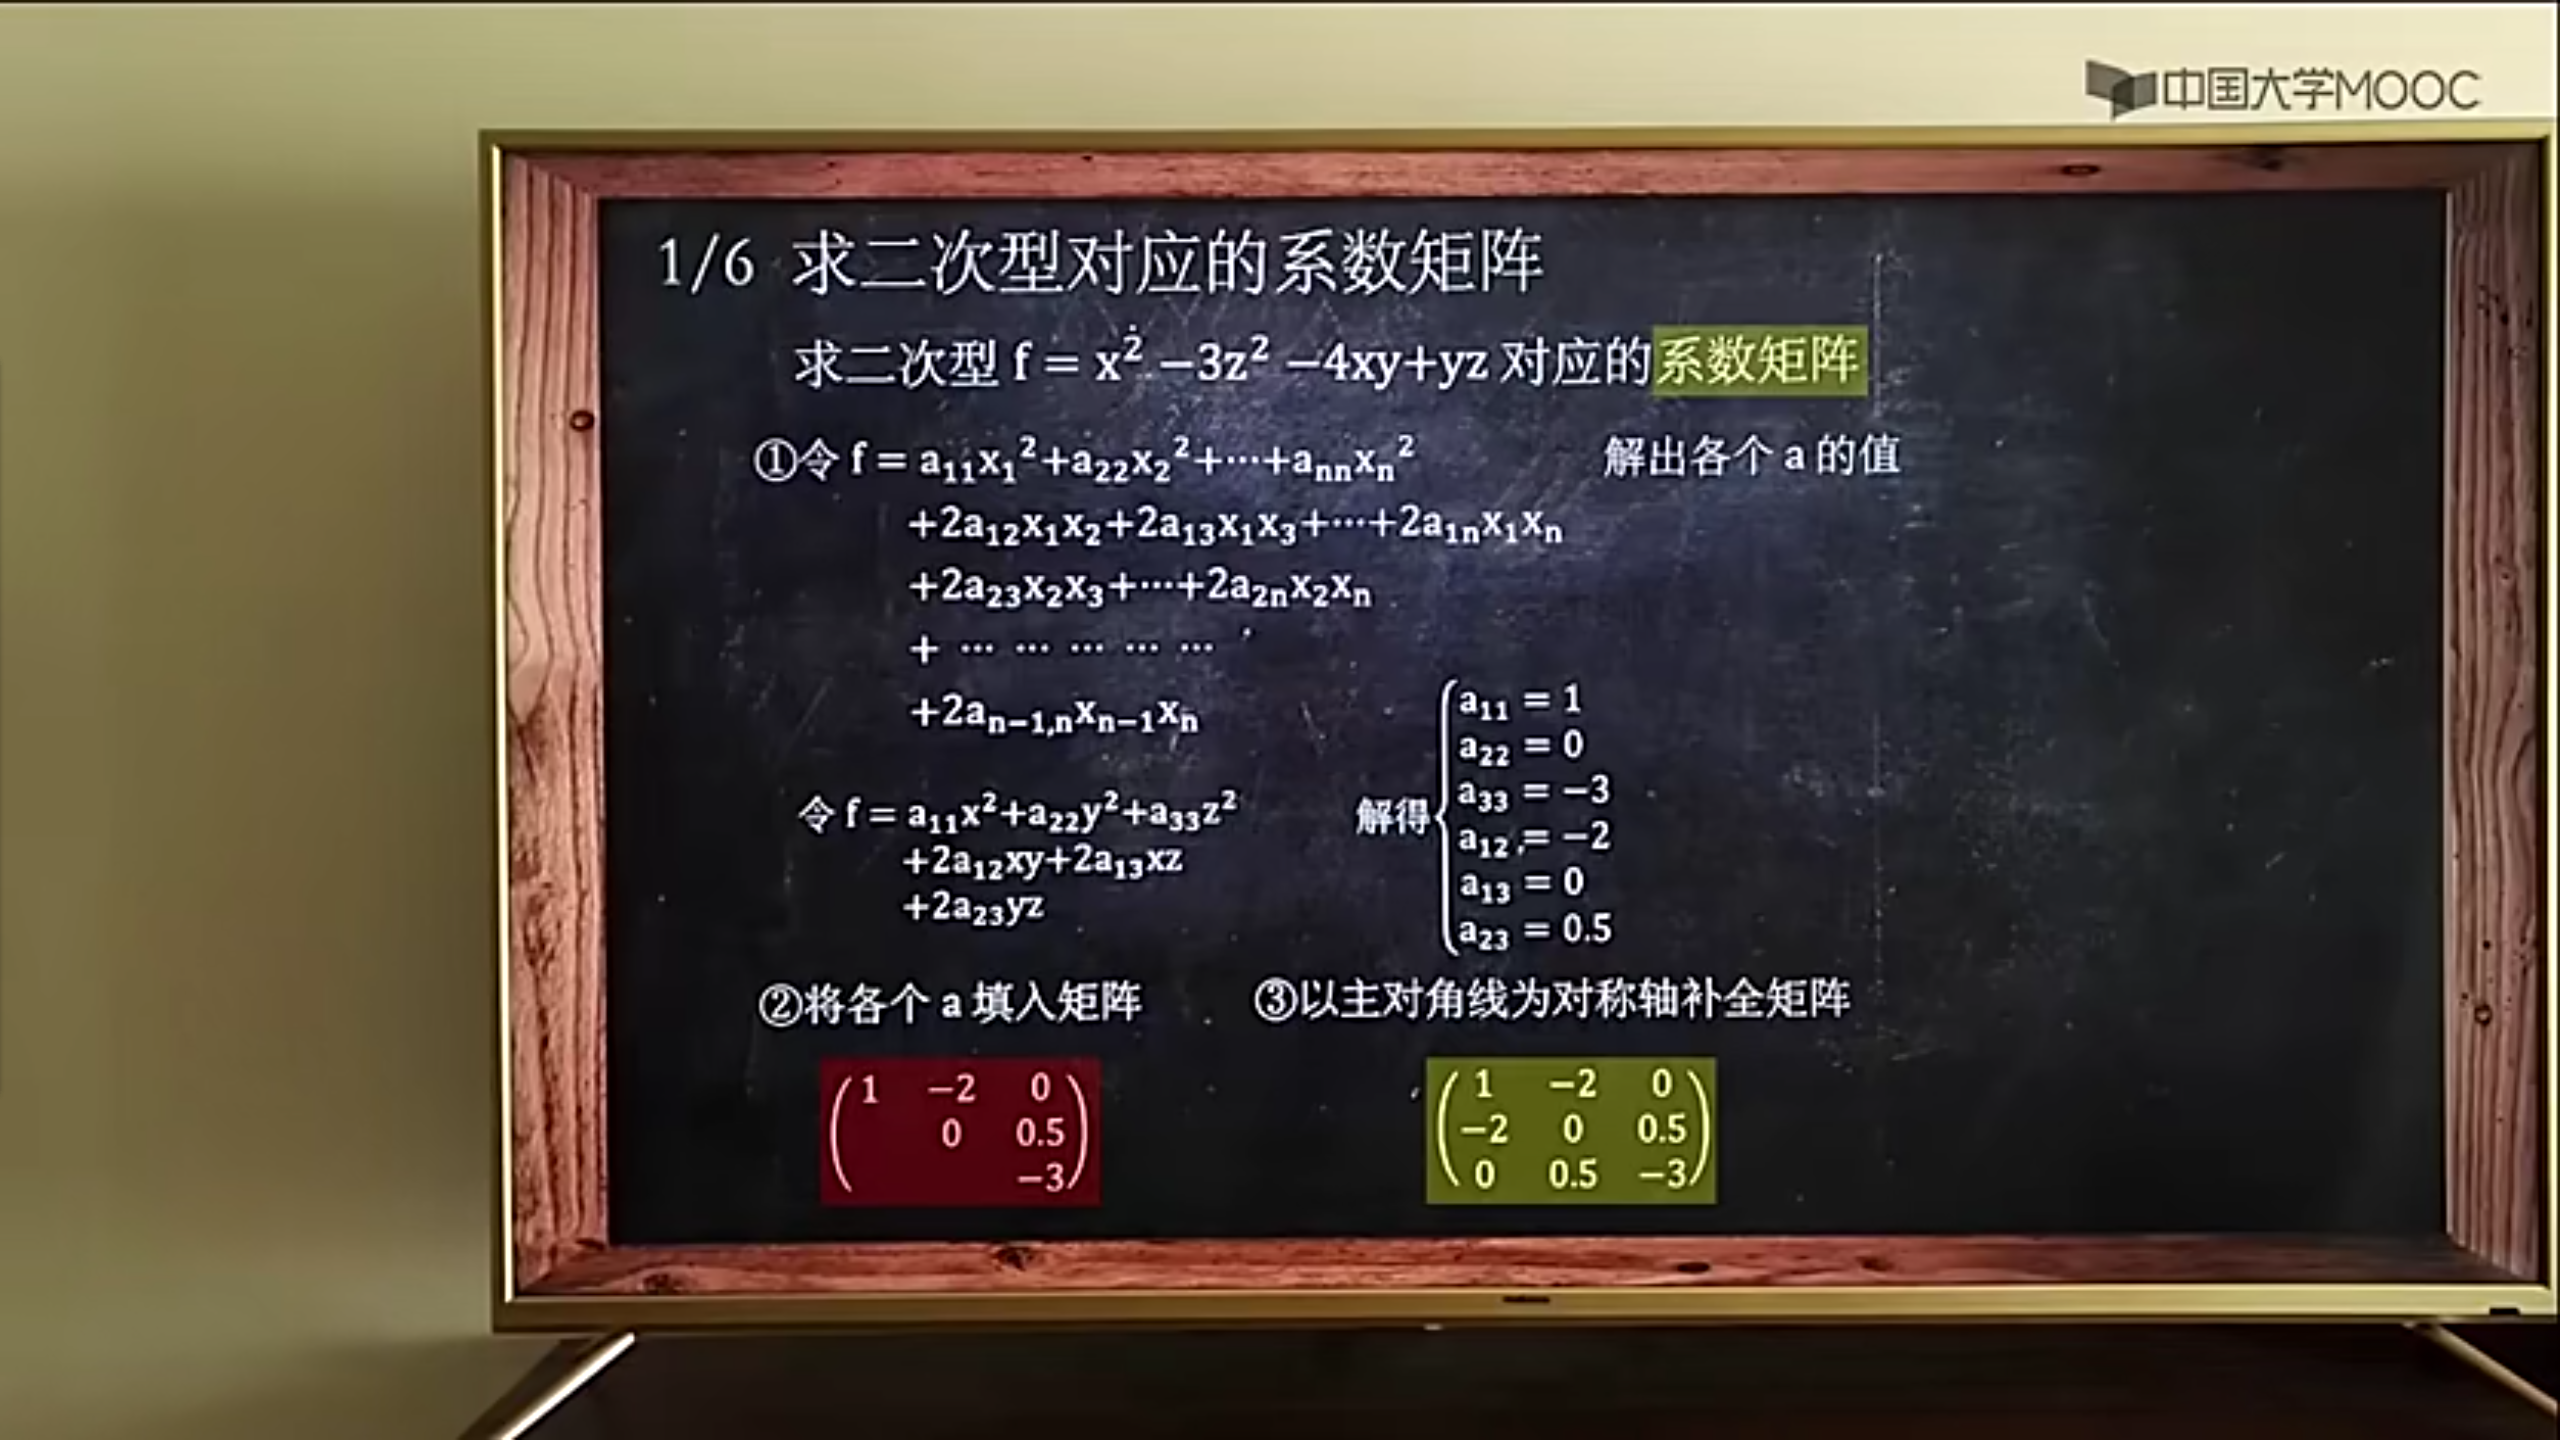 中国大学MOOC
1/6 求二次型对应的系数矩阵
求二次型 f = x² −3z² −4xy+yz 对应的系数矩阵
①令 f = a₁₁x₁²+a₂₂x₂²+⋯+aₙₙxₙ² 解出各个 a 的值
+2a₁₂x₁x₂+2a₁₃x₁x₃+⋯+2a₁ₙx₁xₙ
+2a₂₃x₂x₃+⋯+2a₂ₙx₂xₙ
+ ⋯ ⋯ ⋯ ⋯ ⋯
+2aₙ₋₁,ₙxₙ₋₁xₙ
令 f = a₁₁x²+a₂₂y²+a₃₃z²
+2a₁₂xy+2a₁₃xz
+2a₂₃yz
解得
a₁₁ = 1
a₂₂ = 0
a₃₃ = −3
a₁₂ = −2
a₁₃ = 0
a₂₃ = 0.5
②将各个 a 填入矩阵
1 −2 0
0 0.5
−3
③以主对角线为对称轴补全矩阵
1 −2 0
−2 0 0.5
0 0.5 −3